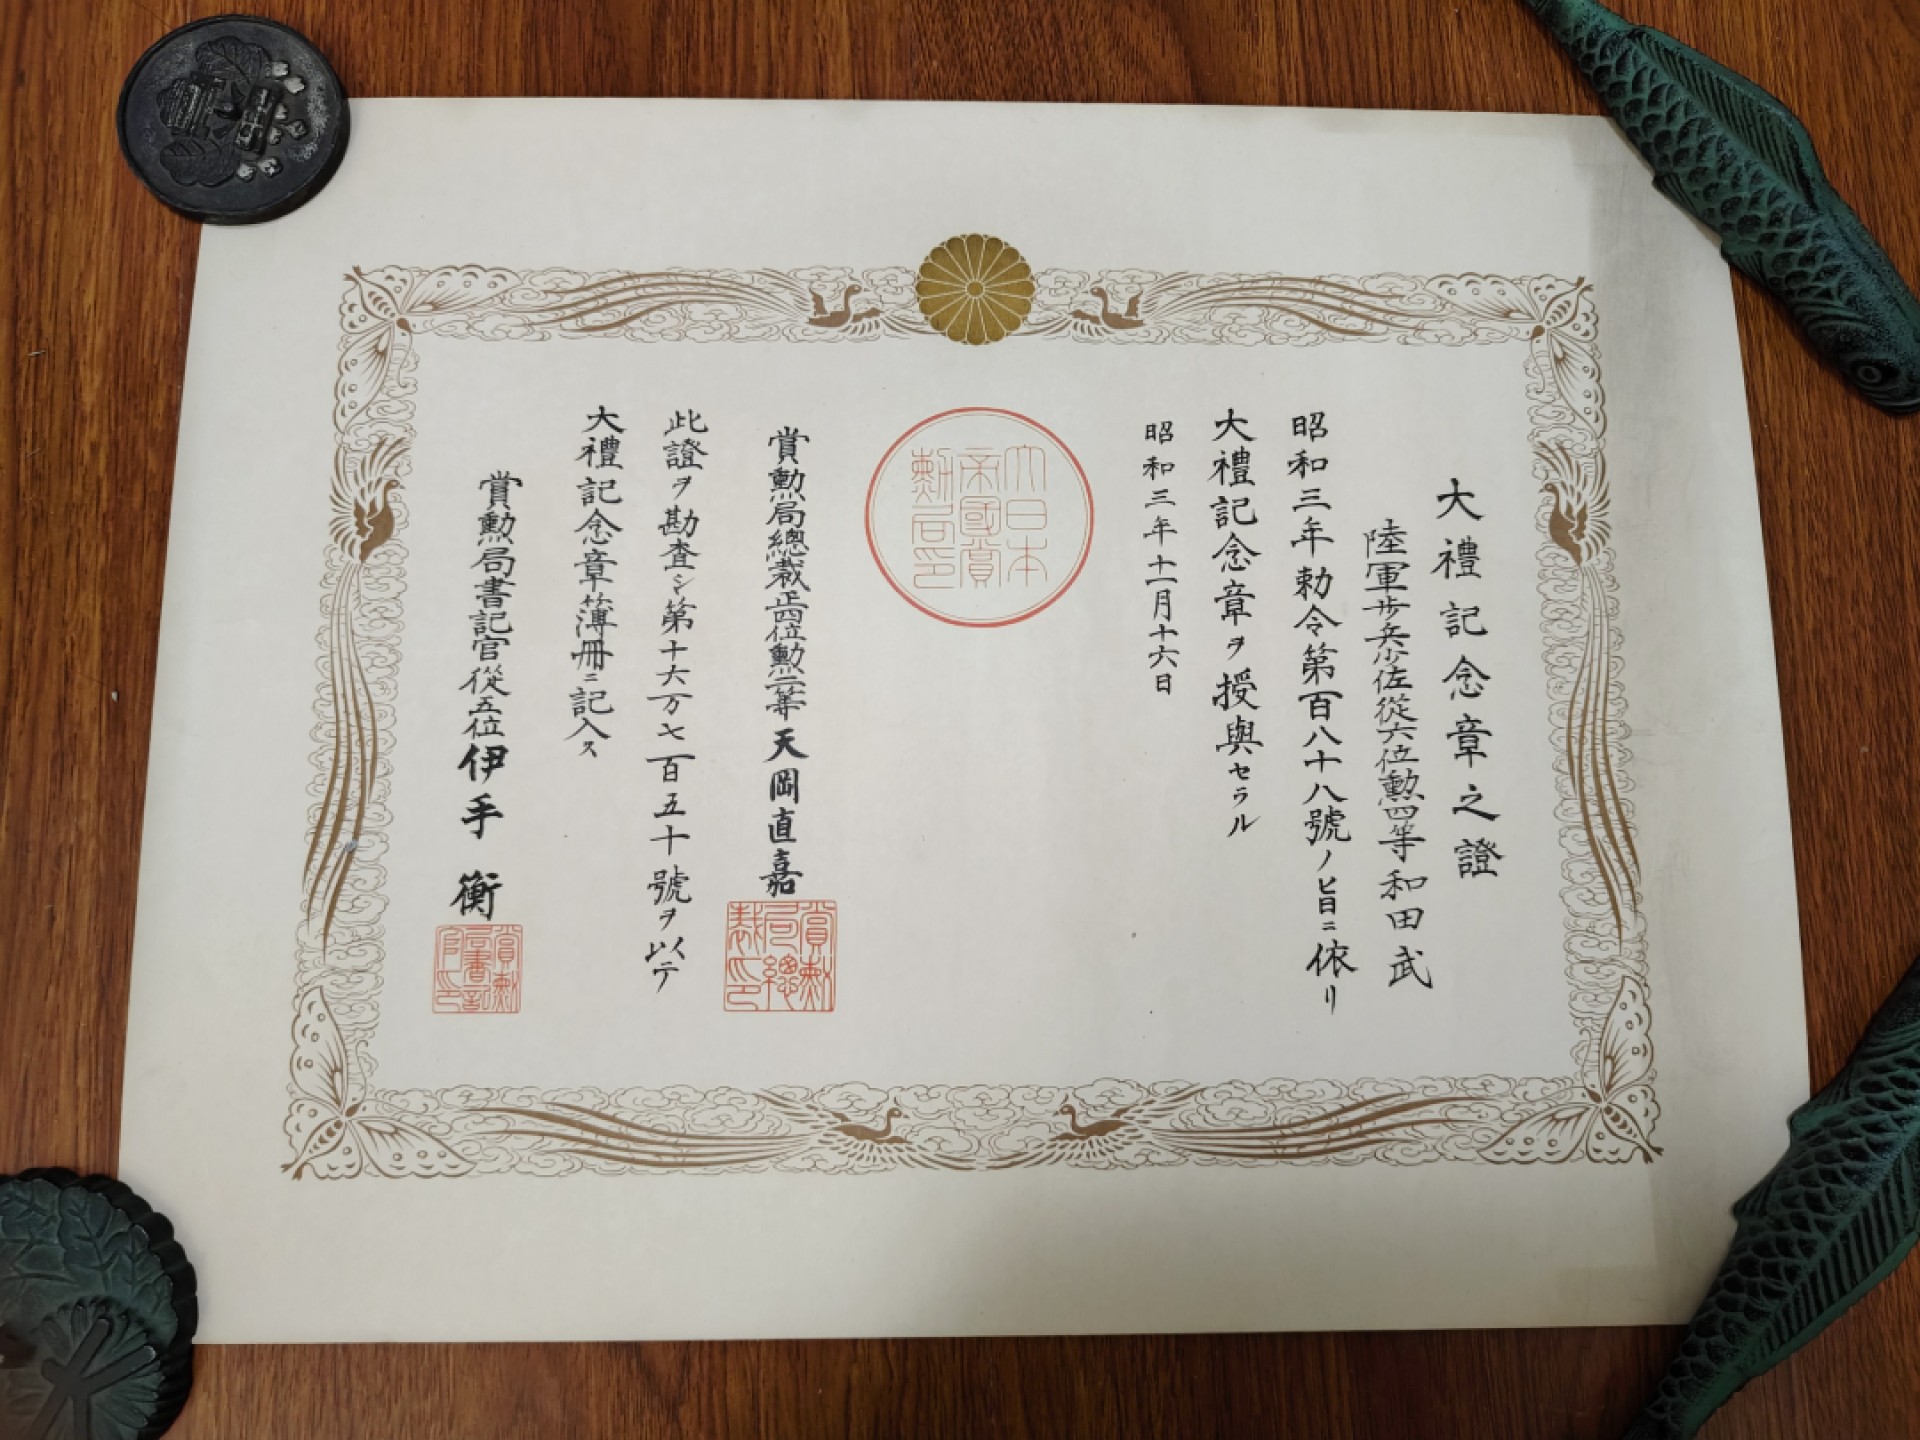 大禮記念章之證
陸軍步兵少佐從六位勲四等和田武
昭和三年勅令第百八十八號ノ旨ニ依リ
大禮記念章ヲ授與セラル
昭和三年十一月十六日
大日本
帝國賞
勲局印
賞勲局總裁正四位勲二等天岡直嘉
賞勲
局總
裁印
此證ヲ勘査シ第十六万七百五十號ヲ以テ
大禮記念章簿冊ニ記入ス
賞勲局書記官從五位伊手衡
賞勲
局書記
官印